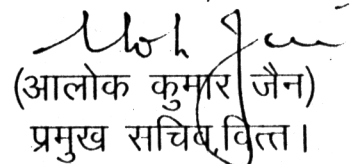 (आलोक कुमार जैन)
प्रमुख सचिव,वित्त।